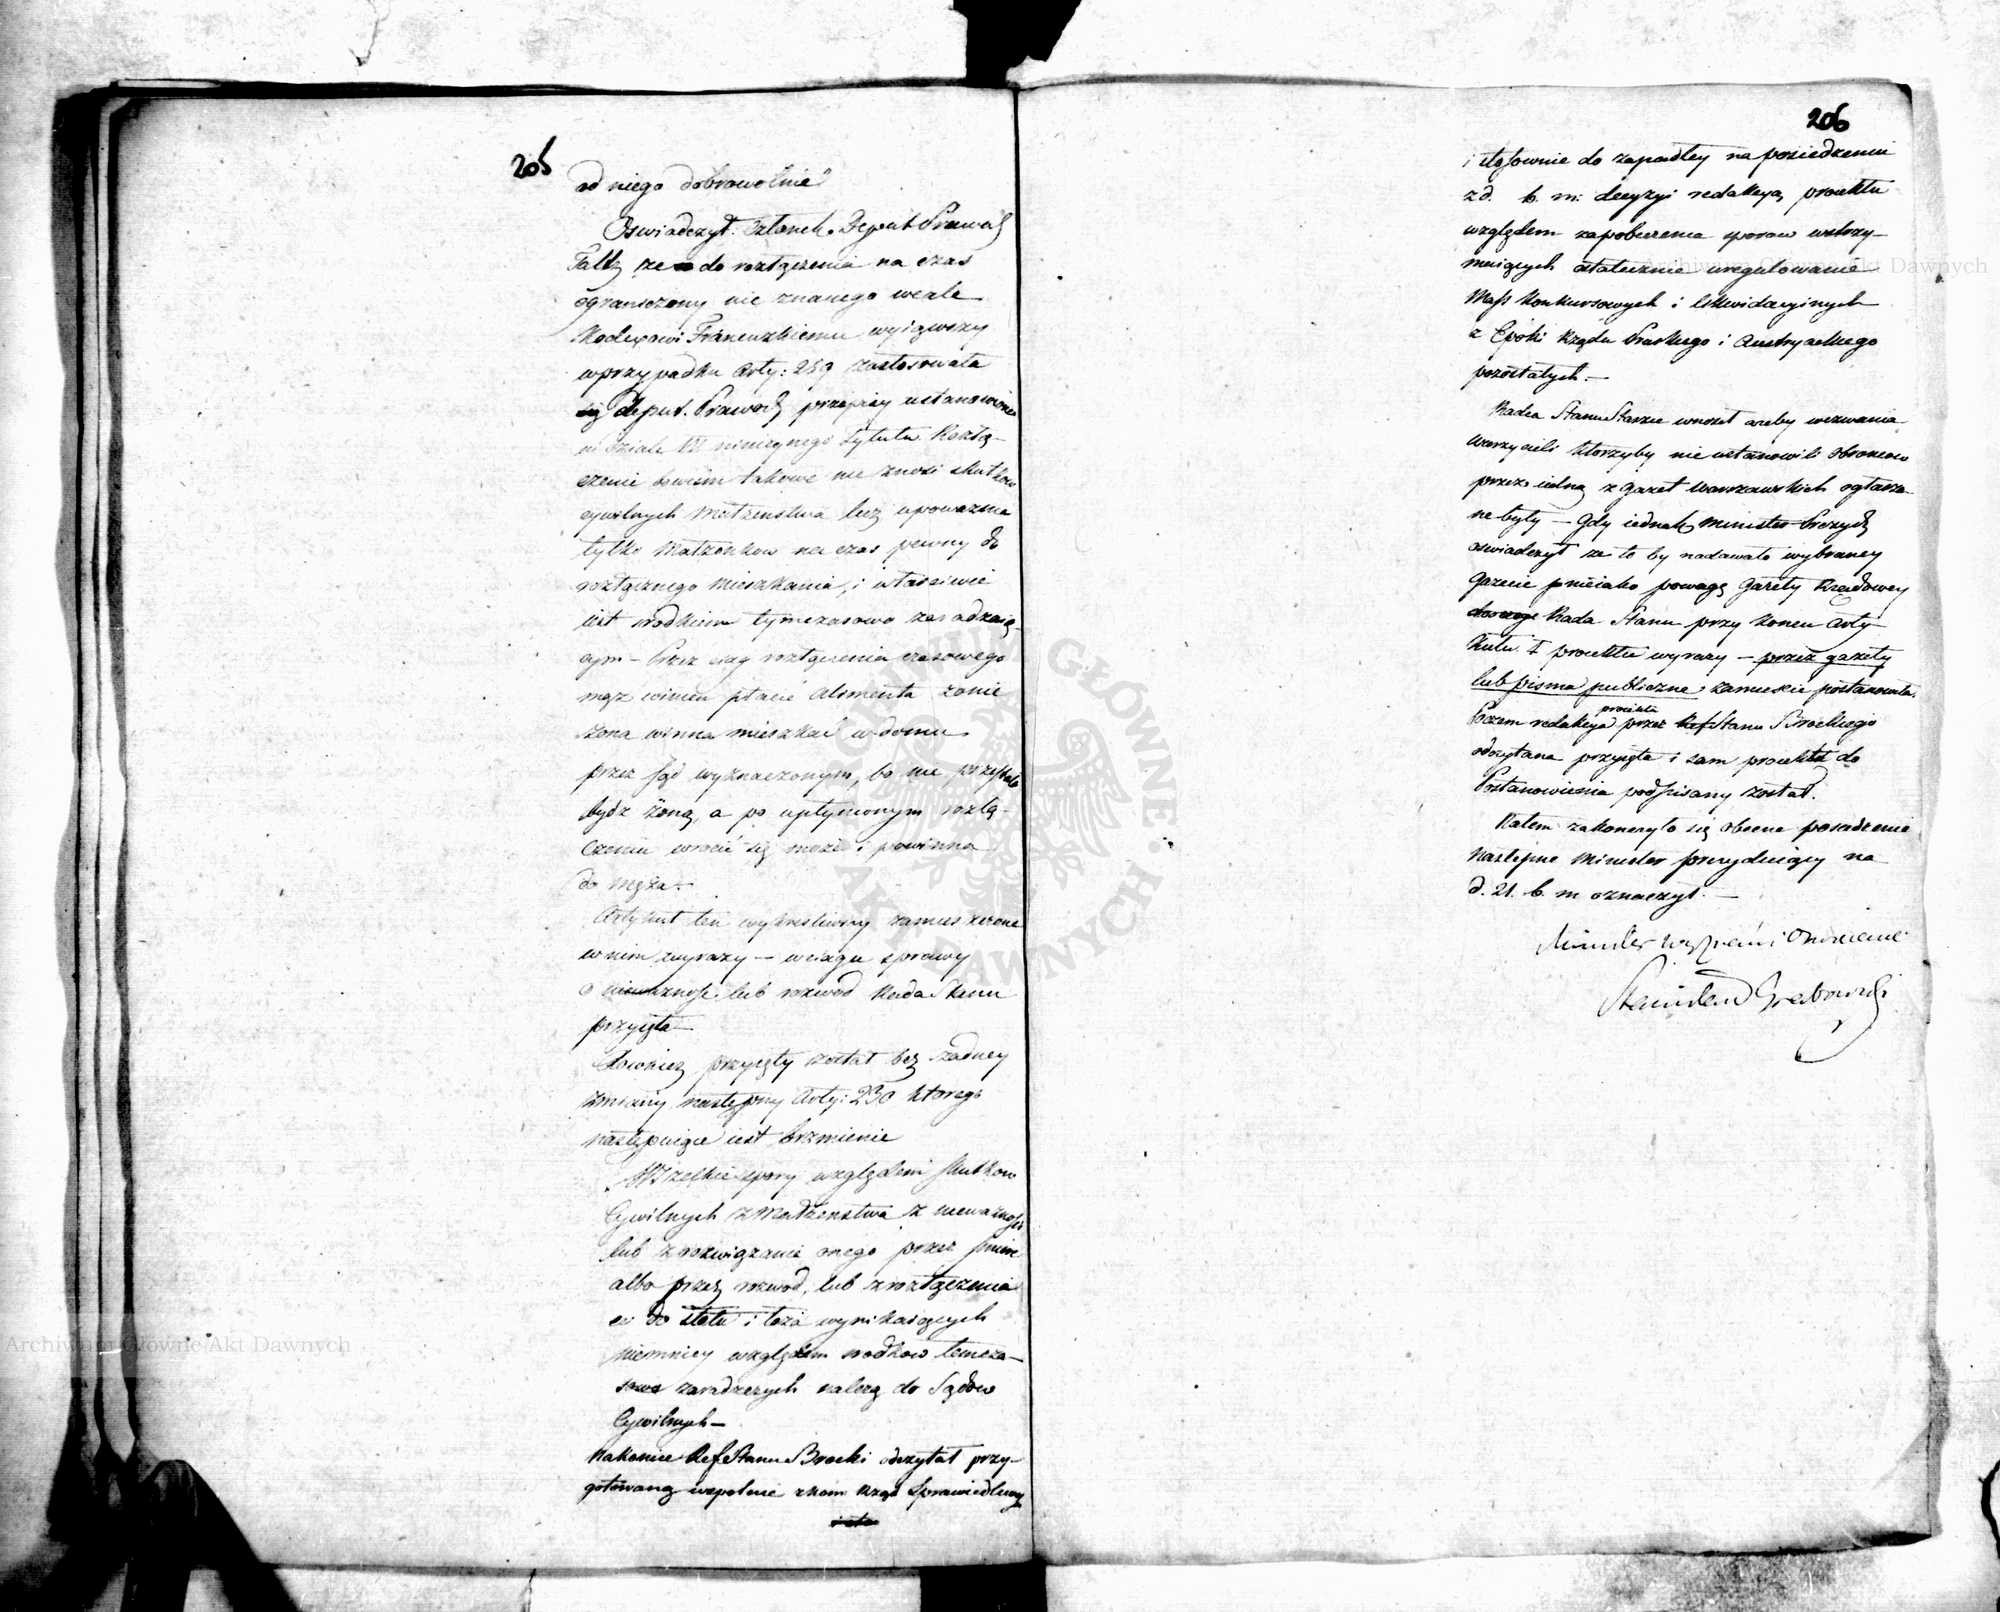 205
od niego dobrowolnie"
Oswiadczył Członek Deput Prawod.
że do rozłączenia na czas
ograniczony nie znanego wcale
Kodexowi Francuzkiemu wyiąwszy
w przypadku Arty: 259 zastosowała
się Deput. Prawod. przepisy ustanowione
w Dziale VII ninieyszego Tytułu. Rozłą-
czenie bowiem takowe nie znosi skutkow
cywilnych Małżenstwa lecz upoważnia
tylko Małżonkow na czas pewny do
rozłącznego mieszkania, i właściwie
iest srodkiem tymczasowo zaradzaią-
cym – Przez ciąg rozłączenia czasowego
mąż winien płacić alimenta żonie
żona winna mieszkać w domu
przez Sąd wyznaczonym, bo nie przestała
bydź żoną, a po upłynionym rozłą-
czeniu wrócić się może i powinna
do męża.
Artykuł ten wykreśliwszy zamieszczone
w nim wyrazy – w ciągu sprawy
o nieważność lub rozwod Rada Stanu
przyięła
Rownież przyięty został bez żadney
zmiany następny Arty: 230 ktorego
następuiące iest brzmienie
„Wszelkie spory względem skutkow
Cywilnych z Małżenstwa z nieważności
lub z rozwiązania onego przez śmierć
albo przez rozwod, lub z rozłączenia
co do stołu i łoża wynikaiących
niemniey względem srodkow temcza-
sowo zaradczych należą do Sądow
Cywilnych –
Nakoniec Ref. Stanu Brocki odczytał przy-
gotowaną wspolnie z Kom: Rząd Sprawiedliwo
206
i stosownie do zapadłey na posiedzeniu
z d. b. m. decyzyi redakcyą proiektu
względem zapobieżenia sporow wstrzy-
muiących ostateczne uregulowanie
Mass Konkursowych i likwidacyinych
z Epoki Rządu Pruskiego i Austryackiego
pozostałych. –
Radca Stanu Starzu wnosił ażeby wezwania
wierzycieli ktorzyby nie ustanowili obroncow
przez iedną z gazet Warszawskich ogłasza-
ne były – Gdy iednak Minister Prezyd.
oswiadczył że to by nadawało wybraney
Gazecie ponieiako powagę Gazety Rządowey
Rada Stanu przy koncu Arty-
kułu I proiektu wyrazy – przez gazety
lub pisma publiczne, zamieścić postanowiła.
Poczem redakcya proiektu przez Ref. Stanu Brockiego
odczytana przyięta i sam proiekt do
Postanowienia podpisany został.
Zatem zakonczyło się obecne posiedzenie
następne Minister prezyduiący na
d. 21. b. m oznaczył. –
Minister Wyznań i Oświecenia
Stanisław Grabowski
Archiwum Główne Akt Dawnych
Archiwum Główne Akt Dawnych
ARCHIWUM GŁÓWNE AKT DAWNYCH